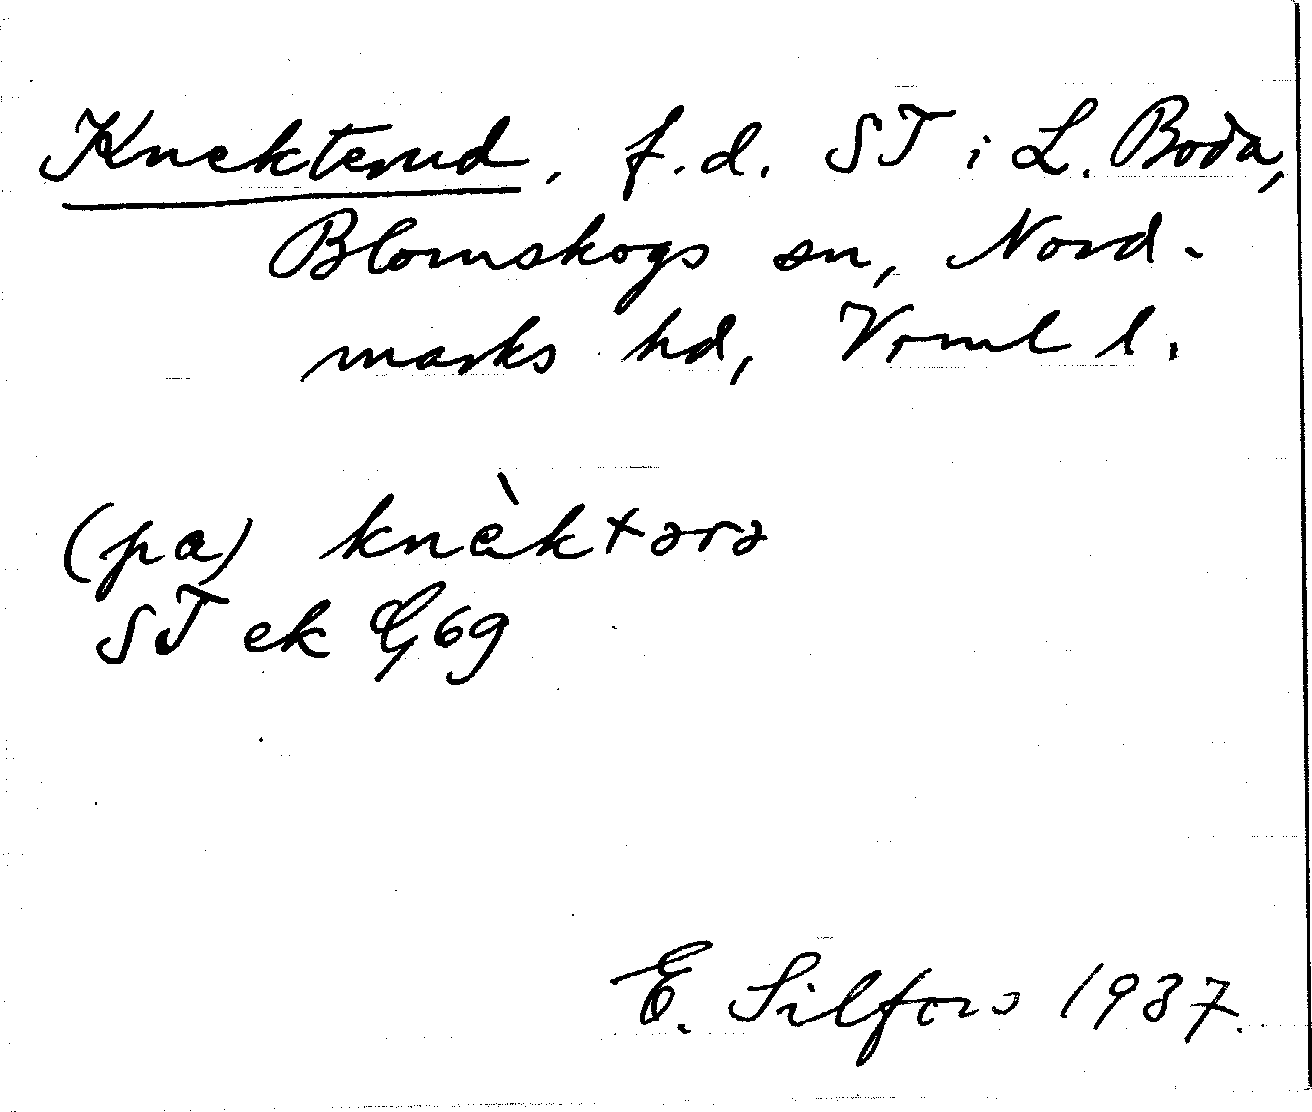 Knekterud, f.d. ST i L. Boda,
Blomskogs sn, Nord-
marks hd, Vrml l.
(pa) knὲktərə
ST ek G 69
E. Silfors 1937.